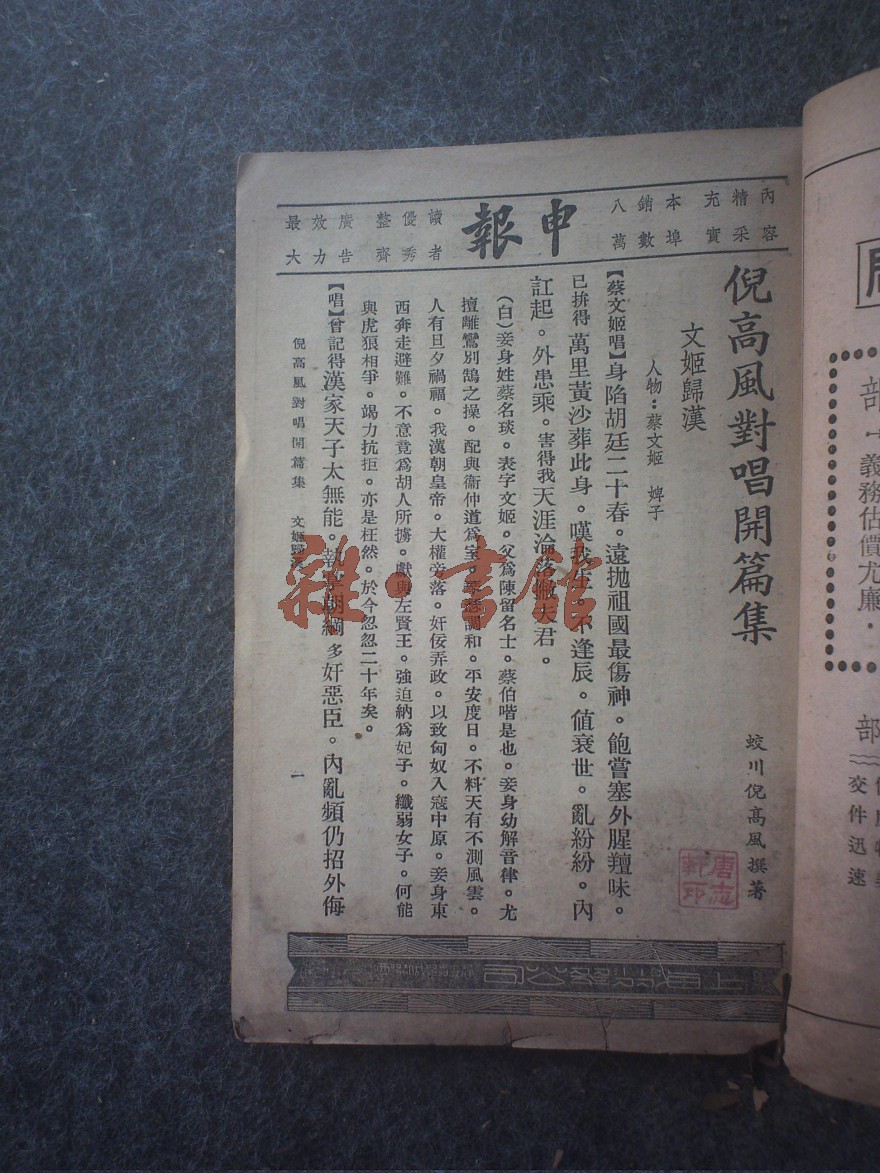 內容
精采
充實
本埠
銷數
八萬
申報
讀者
優秀
整齊
廣告
效力
最大
倪高風對唱開篇集
蛟川倪高風撰著
唐志
軒印
文姬歸漢
人物：蔡文姬　婢子
【蔡文姬唱】身陷胡廷二十春。遠拋祖國最傷神。飽嘗塞外腥羶味。
已拚得萬里黃沙葬此身。嘆我生。不逢辰。値衰世。亂紛紛。內
訌起。外患乘。害得我天涯淪落撇夫君。
（白）妾身姓蔡名琰。表字文姬。父爲陳留名士。蔡伯喈是也。妾身幼解音律。尤
擅離鸞別鵠之操。配與衞仲道爲室。調和。平安度日。不料天有不測風雲。
人有旦夕禍福。我漢朝皇帝。大權旁落。奸佞弄政。以致匈奴入寇中原。妾身東
西奔走避難。不意竟爲胡人所擄。獻與左賢王。強迫納爲妃子。纖弱女子。何能
與虎狼相爭。竭力抗拒。亦是枉然。於今忽忽二十年矣。
【唱】曾記得漢家天子太無能。執掌朝綱多奸惡臣。內亂頻仍招外侮
倪高風對唱開篇集　文姬歸漢
一
雜·書館
部
義務估價尤廉．
部
交件迅速